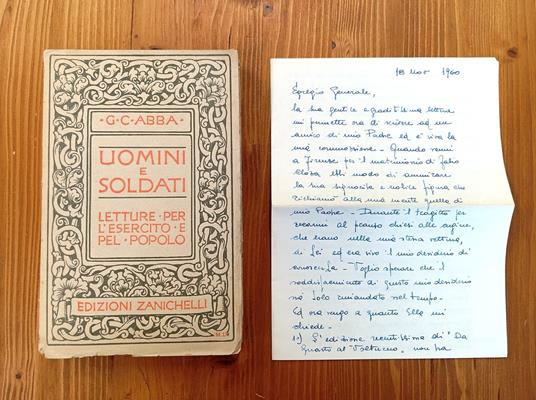 · G · C · ABBA ·
UOMINI
E
SOLDATI
LETTURE · PER
L'ESERCITO · E
PEL · POPOLO
EDIZIONI ZANICHELLI
18 Nov 1960
Egregio Generale,
la sua gentile e gradit lettera
mi permette ora di scrivere ad un
amico di mio Padre ed è viva la
mia commozione - Quando venni
a Firenze per il matrimonio di
ebbi modo di ammirare
la sua signorile e nobile figura che
richiamò alla mia mente quella di
mio Padre - Durante il tragitto per
recarmi al pranzo chiesi alle
che erano nella mia stessa vettura,
di Lei ed era vivo il mio desiderio di
conoscerla - Voglio sperare che il
soddisfacimento di questo mio desiderio
sia solo rimandato nel tempo -
Ed ora vengo a quanto Ella mi
chiede -
1°) L'edizione recentissima di "Da
Quarto al Volturno" non ha